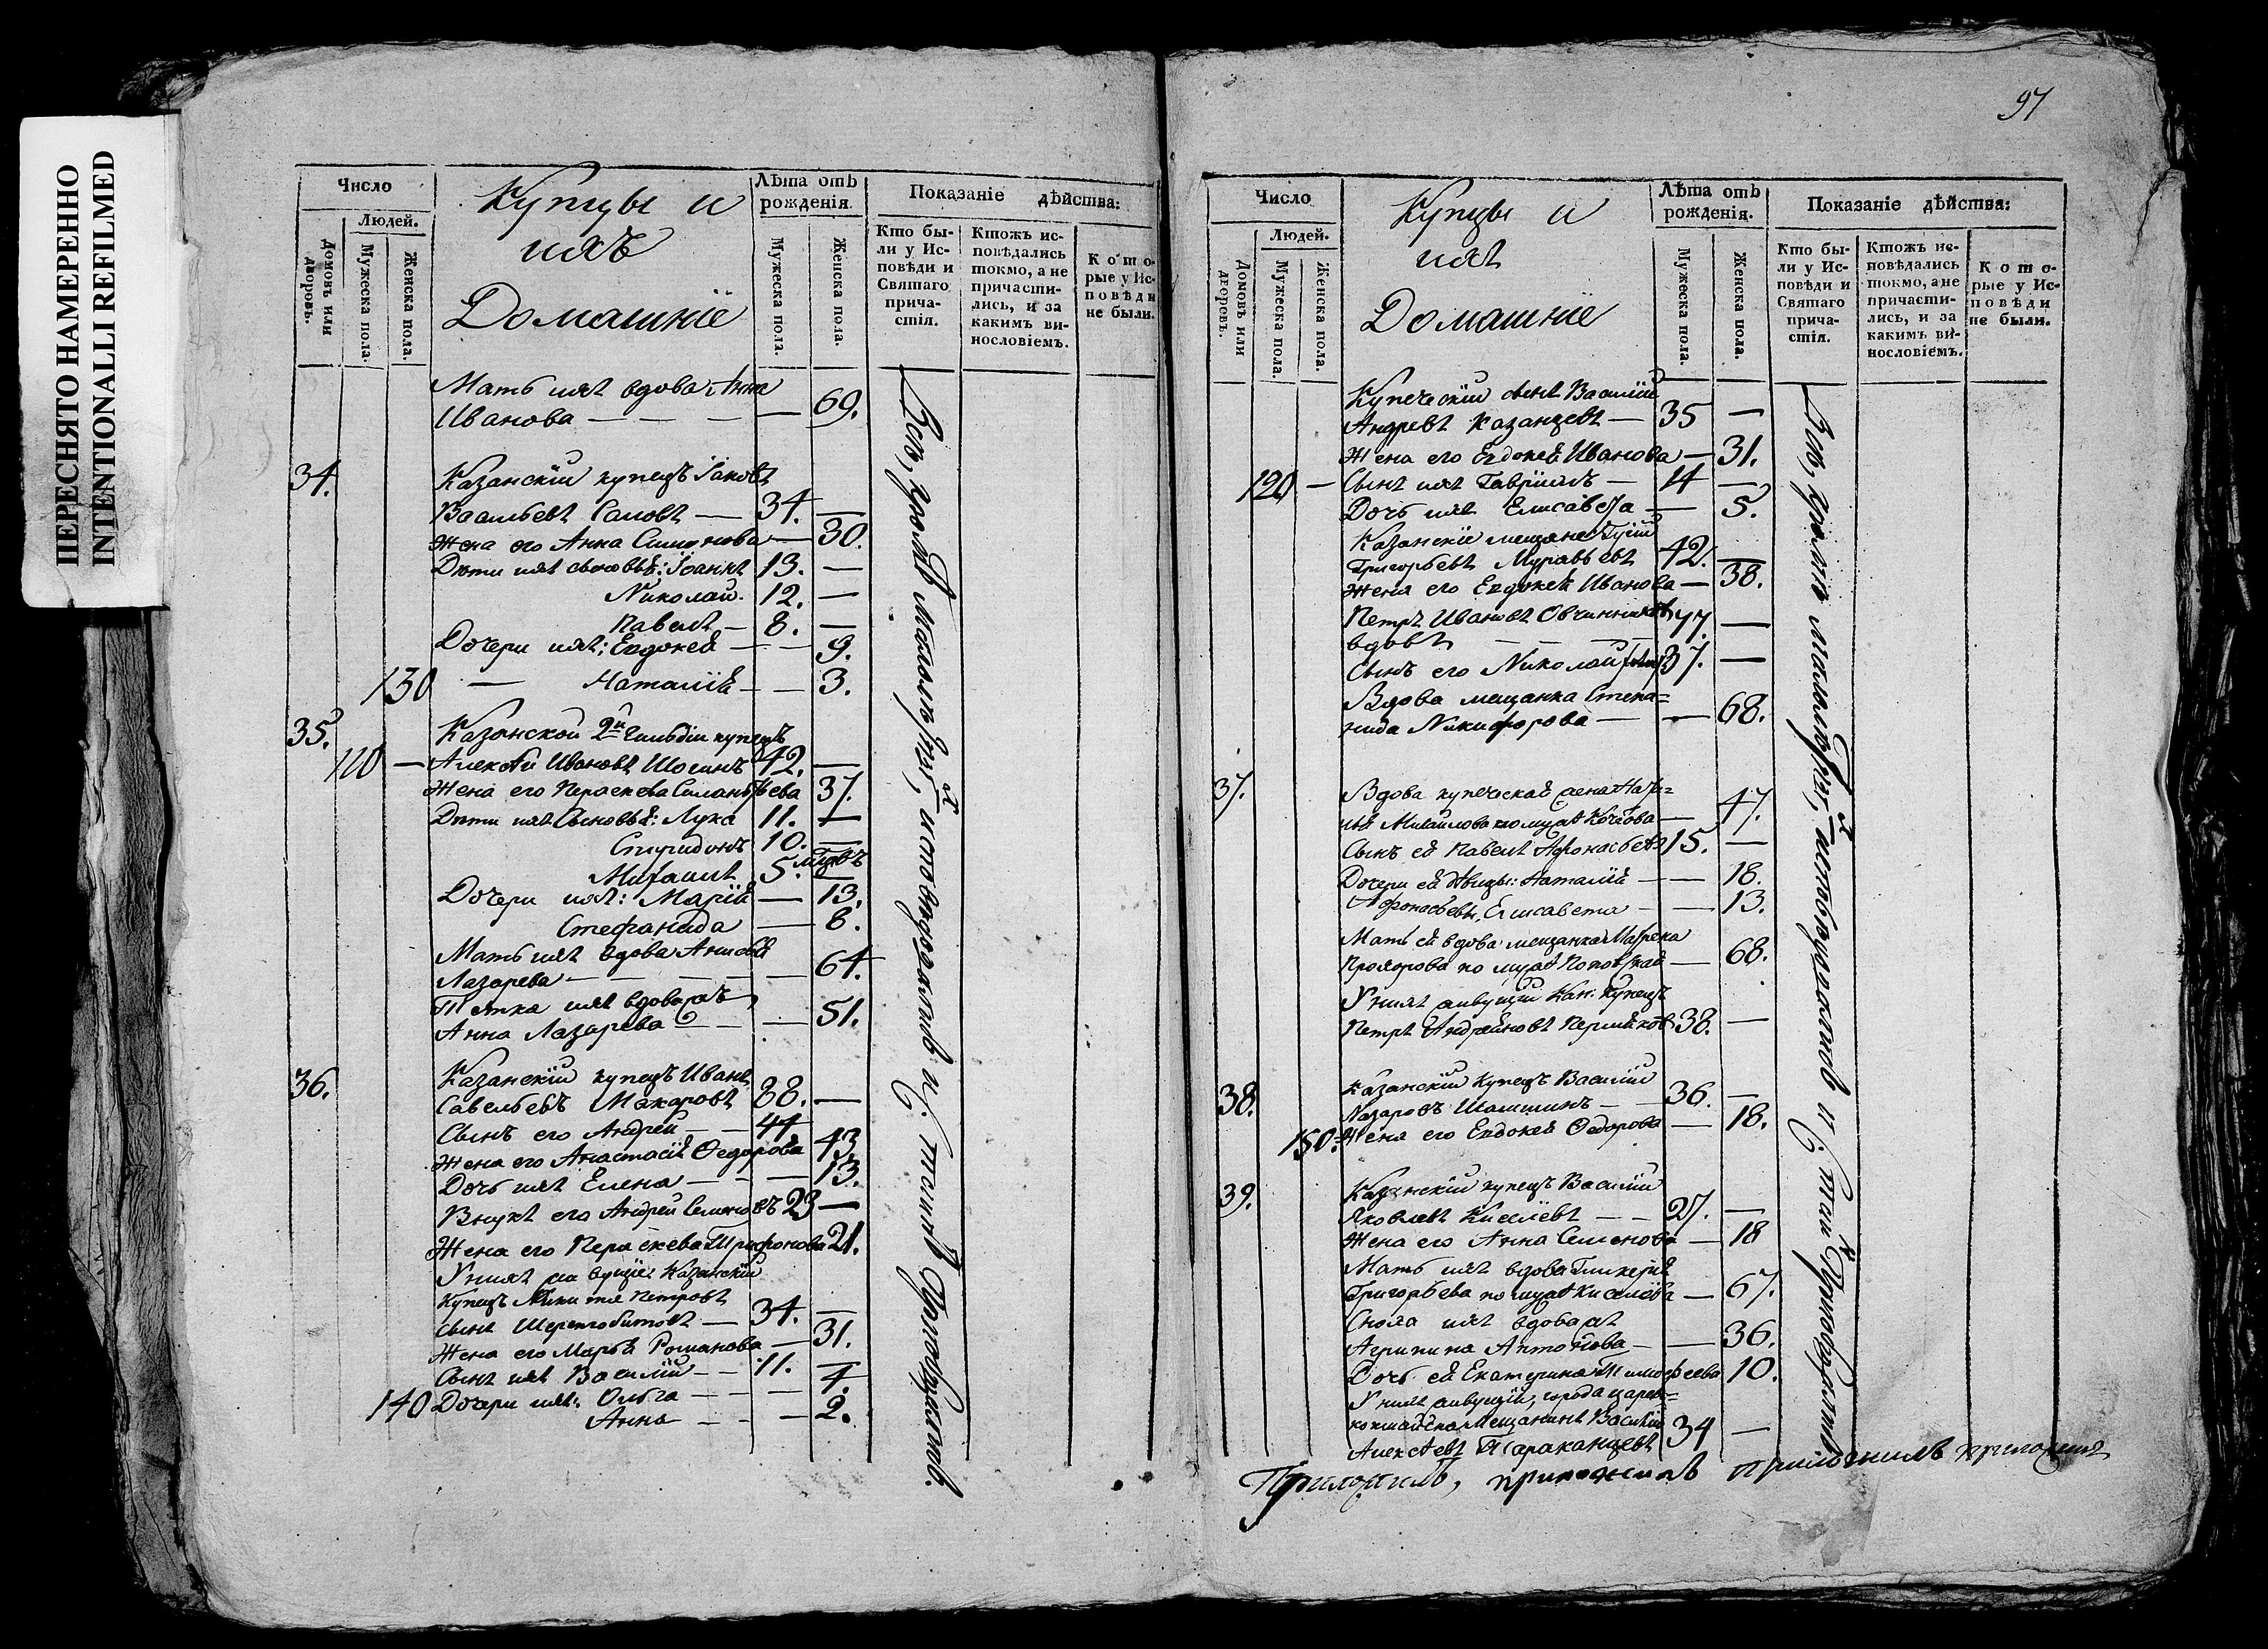 ПЕРЕСНЯТО НАМЕРЕННО
INTENTIONALLI REFILMED
Число
Людей.
Домовъ или дворовъ.
Мужеска пола.
Женска пола.
Купцы и
ихъ
Домашніе
Лѣта отъ рожденія.
Мужеска пола.
Женска пола.
Показаніе дѣйства:
Кто бы-
ли у Ис-
повѣди и
Святаго
прича-
стія.
Ктожъ ис-
повѣдались
токмо, а не
причасти-
лись, и за
какимъ ви-
нословіемъ.
Кото-
рые у Ис-
повѣди
не были.
Мать ихъ вдова Анна
Иванова — — — — 69.
34. Казанскій купецъ Іаковъ
Васильевъ Сановъ — 34. —
Жена его Анна Симонова — 30.
Дѣти ихъ сыновья: Іоаннъ 13. —
Николай. 12. —
Павелъ — 8. —
Дочери ихъ: Евдокея — — 9.
130 — Наталія — — 3.
35. Казанской 2й Гильдіи купецъ
110 — Алексѣй Ивановъ Шогинъ 42. —
Жена его Параскева Силантьева 37.
Дѣти ихъ Сыновья: Лука 11. —
Спиридонъ 10. —
Михаилъ 5. мцовъ —
Дочери ихъ: Марія — 13.
Стефанида — 8.
Мать ихъ вдова Анисья
Лазарева — — — — 64.
Тетка ихъ вдова
Анна Лазарева — — — 51.
36. Казанскій купецъ Иванъ
Савельевъ Макаровъ 88. —
Сынъ его Андрей — — 44
Жена его Анастасія Ѳедорова 43.
Дочь ихъ Елена — — — 13.
Внукъ его Андрей Семеновъ 23 —
Жена его Параскева Трифонова 21.
У нихъ живущіе Казанскій
Купецъ Никита Петровъ
сынъ — 34. —
Жена его Марья Романова — 31.
Сынъ ихъ Василій — — 11. —
140 Дочери ихъ: Ольга — — — 4.
Анна — — — 2.
Всѣ, кромѣ малолѣтныхъ, исповѣдались и с. таинъ пріобщились.
97
Число
Людей.
Домовъ или дворовъ.
Мужеска пола.
Женска пола.
Купцы и
ихъ
Домашніе
Лѣта отъ рожденія.
Мужеска пола.
Женска пола.
Показаніе дѣйства:
Кто бы-
ли у Ис-
повѣди и
Святаго
прича-
стія.
Ктожъ ис-
повѣдались
токмо, а не
причасти-
лись, и за
какимъ ви-
нословіемъ.
Кото-
рые у Ис-
повѣди
не были.
Купеческій сынъ Василій
Андреевъ Казанцевъ — 35 —
Жена его Евдокея Иванова — 31.
120 — Сынъ ихъ Гавріилъ — 14 —
Дочь ихъ Елисавета — 5.
Казанскіе мещане
Григорьевъ Муравьевъ 42. —
Жена его Евдокея Иванова — 38.
Петръ Ивановъ Овчинниковъ 77. —
вдовъ — — —
Сынъ его Николай 37. —
Вдова мещанка Степа=
нида Никифорова — — 68.
37. Вдова купеческая жена
Михайлова по мужѣ — 47.
Сынъ ея Павелъ Афонасьевъ 15. —
Дочери ея дѣвицы: Наталія — — 18.
Афонасьевы, Елисавета — — 13.
Мать ея вдова мещанка Матрена
Прохорова по мужѣ — 68.
У нихъ живущій Каз. Купецъ
Петръ 38. —
38. Казанскій Купецъ Василій
Назаровъ — — 36. —
150. Жена его Евдокея Ѳедорова — 18.
39. Казанскій купецъ Василій
Яковлевъ Киселевъ — — 27. —
Жена его Анна Семенова — 18
Мать ихъ вдова Гликерія
Григорьева по мужѣ Киселева — 67.
Сноха ихъ вдова
Агрипина Антонова — — 36.
Дочь ея Екатерина Тимофеева 10.
У нихъ живущій, города Царево=
кокшайска Мещанинъ Василій
Алексѣевъ Тараканцевъ 34 —
Всѣ, кромѣ малолѣтныхъ, исповѣдались и с. таинъ
Приложилъ, приложилъ приложилъ